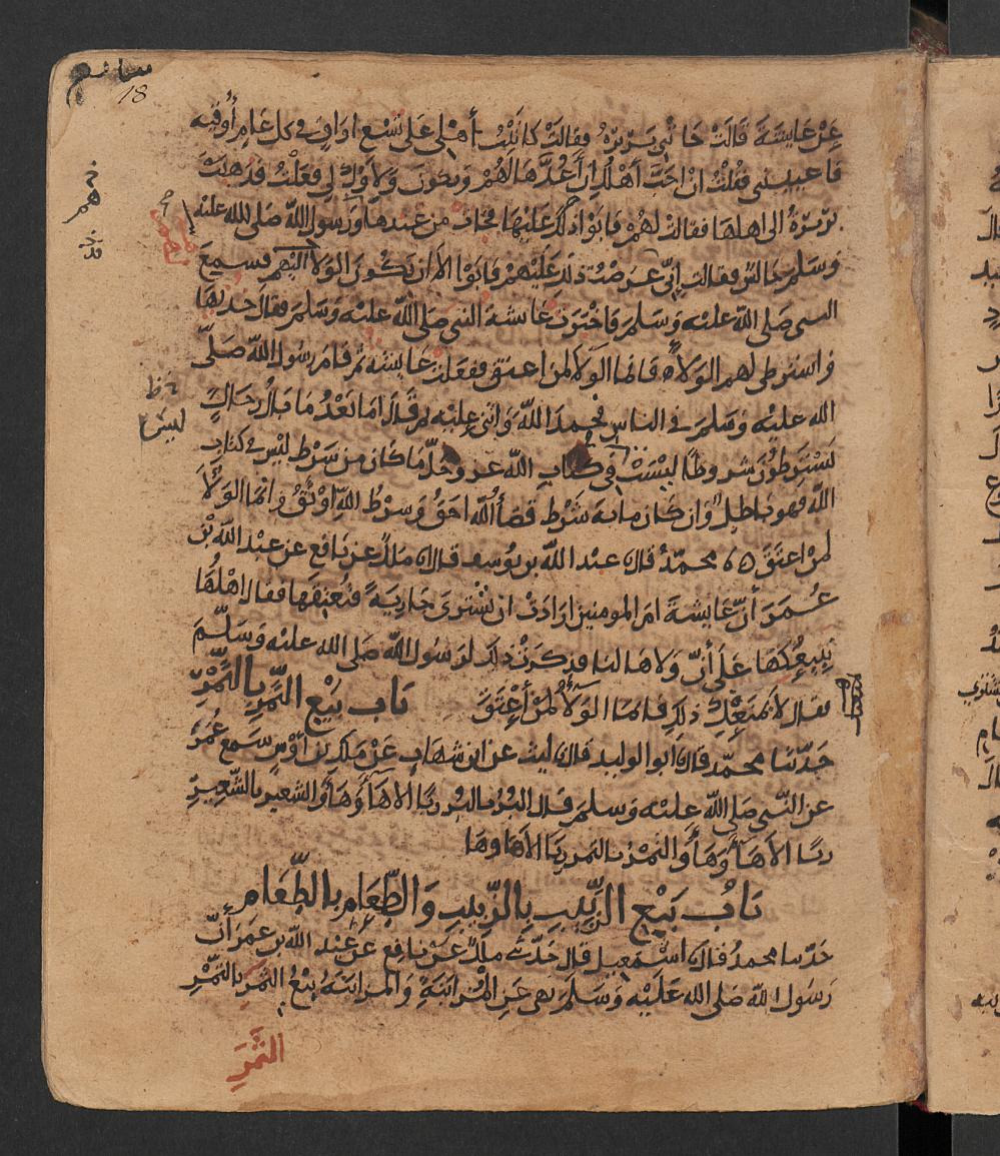 سابع
18
عن عايشة قالت جاتني بريرة فقالت كاتبت أهلي على تسع اواق في كل عام أوقية
فاعينيني فقلت ان احب أهلك أن أعدها لهم ويكون ولاوك لي فعلت فذهبت
بريرة الى اهلها فقالت لهم فابوا ذلك عليها فجات من عندها ورسول الله صلى الله عليه
وسلم جالس فقالت إني عرضت ذلك عليهم فابوا الا أن يكون الولا لهم فسمع
النبي صلى الله عليه وسلم فاخبرت عايشة النبي صلى الله عليه وسلم فقال خذيها
واشترطي لهم الولاء فانما الولا لمن اعتق ففعلت عايشة ثم قام رسول الله صلى
الله عليه وسلم في الناس فحمد الله واثنى عليه ثم قال اما بعد ما بال رجال
يشترطون شروطا ليست في كتاب الله عز وجل ما كان من شرط ليس في كتاب
الله فهو باطل وان كان ماية شرط قضا الله احق وشرط الله اوثق وانما الولا
لمن اعتق محمد قال عبد الله بن يوسف قال ملك عن نافع عن عبد الله بن
عمر أن عايشة ام المومنين ارادت ان تشتري جارية فتعتقها فقال اهلها
نبيعكها على أن ولاها لنا فذكرت ذلك لرسول الله صلى الله عليه وسلم
فقال لا يمنعك ذلك فانما الولا لمن أعتق باب بيع التمر بالتمر
حدثنا محمد قال ابو الوليد قال ليث عن ابن شهاب عن ملك بن أوس سمع عمر
عن النبي صلى الله عليه وسلم قال البر بالبر ربا الا هاء وهاء والشعير بالشعير
ربا الا هاء وهاء والتمر بالتمر ربا الا ها وها
باب بيع الزبيب بالزبيب والطعام بالطعام
حدثنا محمد قال اسمعيل قال حدثني ملك عن نافع عن عبد الله بن عمر أن
رسول الله صلى الله عليه وسلم نهى عن المزابنة والمزابنة بيع الثمر بالتمر
الثمر
ليس